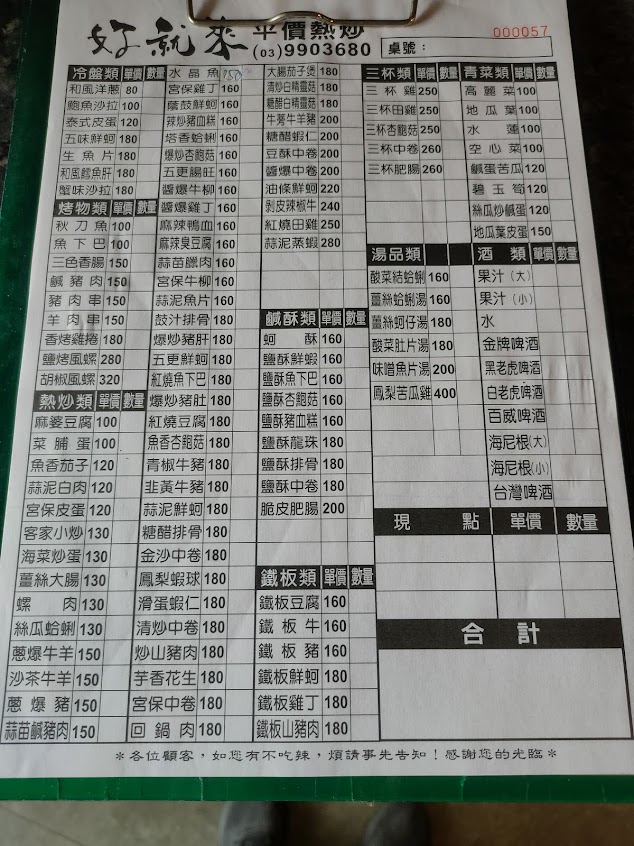 好就來 平價熱炒
(03)9903680 桌號：
000057
冷盤類 單價 數量
和風洋蔥 80
鮑魚沙拉 100
泰式皮蛋 120
五味鮮蚵 180
生魚片 180
和風鱈魚肝 180
蟹味沙拉 180
烤物類 單價 數量
秋刀魚 100
魚下巴 100
三色香腸 150
鹹豬肉 150
豬肉串 150
羊肉串 150
香烤雞捲 180
鹽烤風螺 280
胡椒風螺 320
熱炒類 單價 數量
麻婆豆腐 100
菜脯蛋 100
魚香茄子 120
蒜泥白肉 120
宮保皮蛋 120
客家小炒 130
海菜炒蛋 130
薑絲大腸 130
螺肉 130
絲瓜蛤蜊 130
蔥爆牛羊 150
沙茶牛羊 150
蔥爆豬 150
蒜苗鹹豬肉 150
水晶魚 150
宮保雞丁 160
蔭鼓鮮蚵 160
辣炒豬血糕 160
塔香蛤蜊 160
爆炒杏鮑菇 160
五更腸旺 160
醬爆牛柳 160
醬爆雞丁 160
麻辣鴨血 160
麻辣臭豆腐 160
蒜苗臘肉 160
宮保牛柳 160
蒜泥魚片 160
鼓汁排骨 180
爆炒豬肝 180
五更鮮蚵 180
紅燒魚下巴 180
爆炒豬肚 180
紅燒豆腐 180
魚香杏鮑菇 180
青椒牛豬 180
韮黃牛豬 180
蒜泥鮮蚵 180
糖醋排骨 180
金沙中卷 180
鳳梨蝦球 180
滑蛋蝦仁 180
清炒中卷 180
炒山豬肉 180
芋香花生 180
宮保中卷 180
回鍋肉 180
大腸茄子煲 180
清炒白精靈菇 180
糖醋白精靈菇 180
牛蒡牛羊豬 200
糖醋蝦仁 200
豆酥中卷 200
醬爆中卷 200
油條鮮蚵 220
剝皮辣椒牛 240
紅燒田雞 250
蒜泥蒸蝦 280
鹹酥類 單價 數量
蚵酥 160
鹽酥鮮蝦 160
鹽酥魚下巴 160
鹽酥杏鮑菇 160
鹽酥豬血糕 160
鹽酥龍珠 180
鹽酥排骨 180
鹽酥中卷 180
脆皮肥腸 200
鐵板類 單價 數量
鐵板豆腐 160
鐵板牛 160
鐵板豬 160
鐵板鮮蚵 180
鐵板雞丁 180
鐵板山豬肉 180
三杯類 單價 數量
三杯雞 250
三杯田雞 250
三杯杏鮑菇 250
三杯中卷 260
三杯肥腸 260
湯品類
酸菜結蛤蜊 160
薑絲蛤蜊湯 160
薑絲蚵仔湯 180
酸菜肚片湯 180
味噌魚片湯 200
鳳梨苦瓜雞 400
青菜類 單價 數量
高麗菜 100
地瓜葉 100
水蓮 100
空心菜 100
鹹蛋苦瓜 120
碧玉筍 120
絲瓜炒鹹蛋 120
地瓜葉皮蛋 150
酒類 單價 數量
果汁(大)
果汁(小)
水
金牌啤酒
黑老虎啤酒
白老虎啤酒
百威啤酒
海尼根(大)
海尼根(小)
台灣啤酒
現點 單價 數量
合計
＊各位顧客，如您有不吃辣，煩請事先告知！感謝您的光臨＊